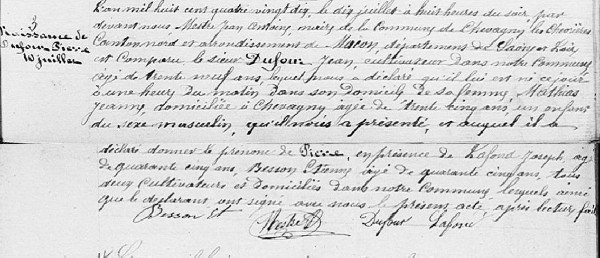 3
Naissance de
Dufour Pierre
10 juillet
L'an mil huit cent quatre vingt dix, le dix juillet à huit heures du soir par
devant nous, Mestre Jean Antoine, maire de la Commune de Chevagny les Chevrières
Canton nord et arrondissement de Mâcon, département de Saône et Loire
est Comparu le sieur Dufour Jean, cultivateur dans notre Commune
âgé de trente neuf ans, lequel nous a déclaré qu'il lui est né ce jour
d'une heure du matin dans son domicile de sa femme, Mathias
Jeanne, domiciliée à Chevagny âgée de trente cinq ans, un enfant
du sexe masculin, qu'il nous a présenté, et auquel il a
déclaré donner le prénom de Pierre, en présence de Lafond Joseph, âgé
de quarante cinq ans, Besson Etienne âgé de quarante cinq ans, tous
deux Cultivateurs et domiciliés dans notre Commune, lesquels ainsi
que le déclarant ont signé avec nous le présent acte, après lecture faite
Besson Et Mestre Dufour Lafond